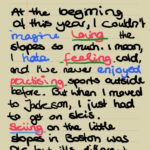 At the beginning
of this year, I couldn't
imagine laving the
slopes so much. I mean,
I hate feeling cold,
and I've never enjoyed
practising sports outside
before. But when I moved
to Jackson, I just had
to get on skis.
Skiing on the little
slopes in Boston was